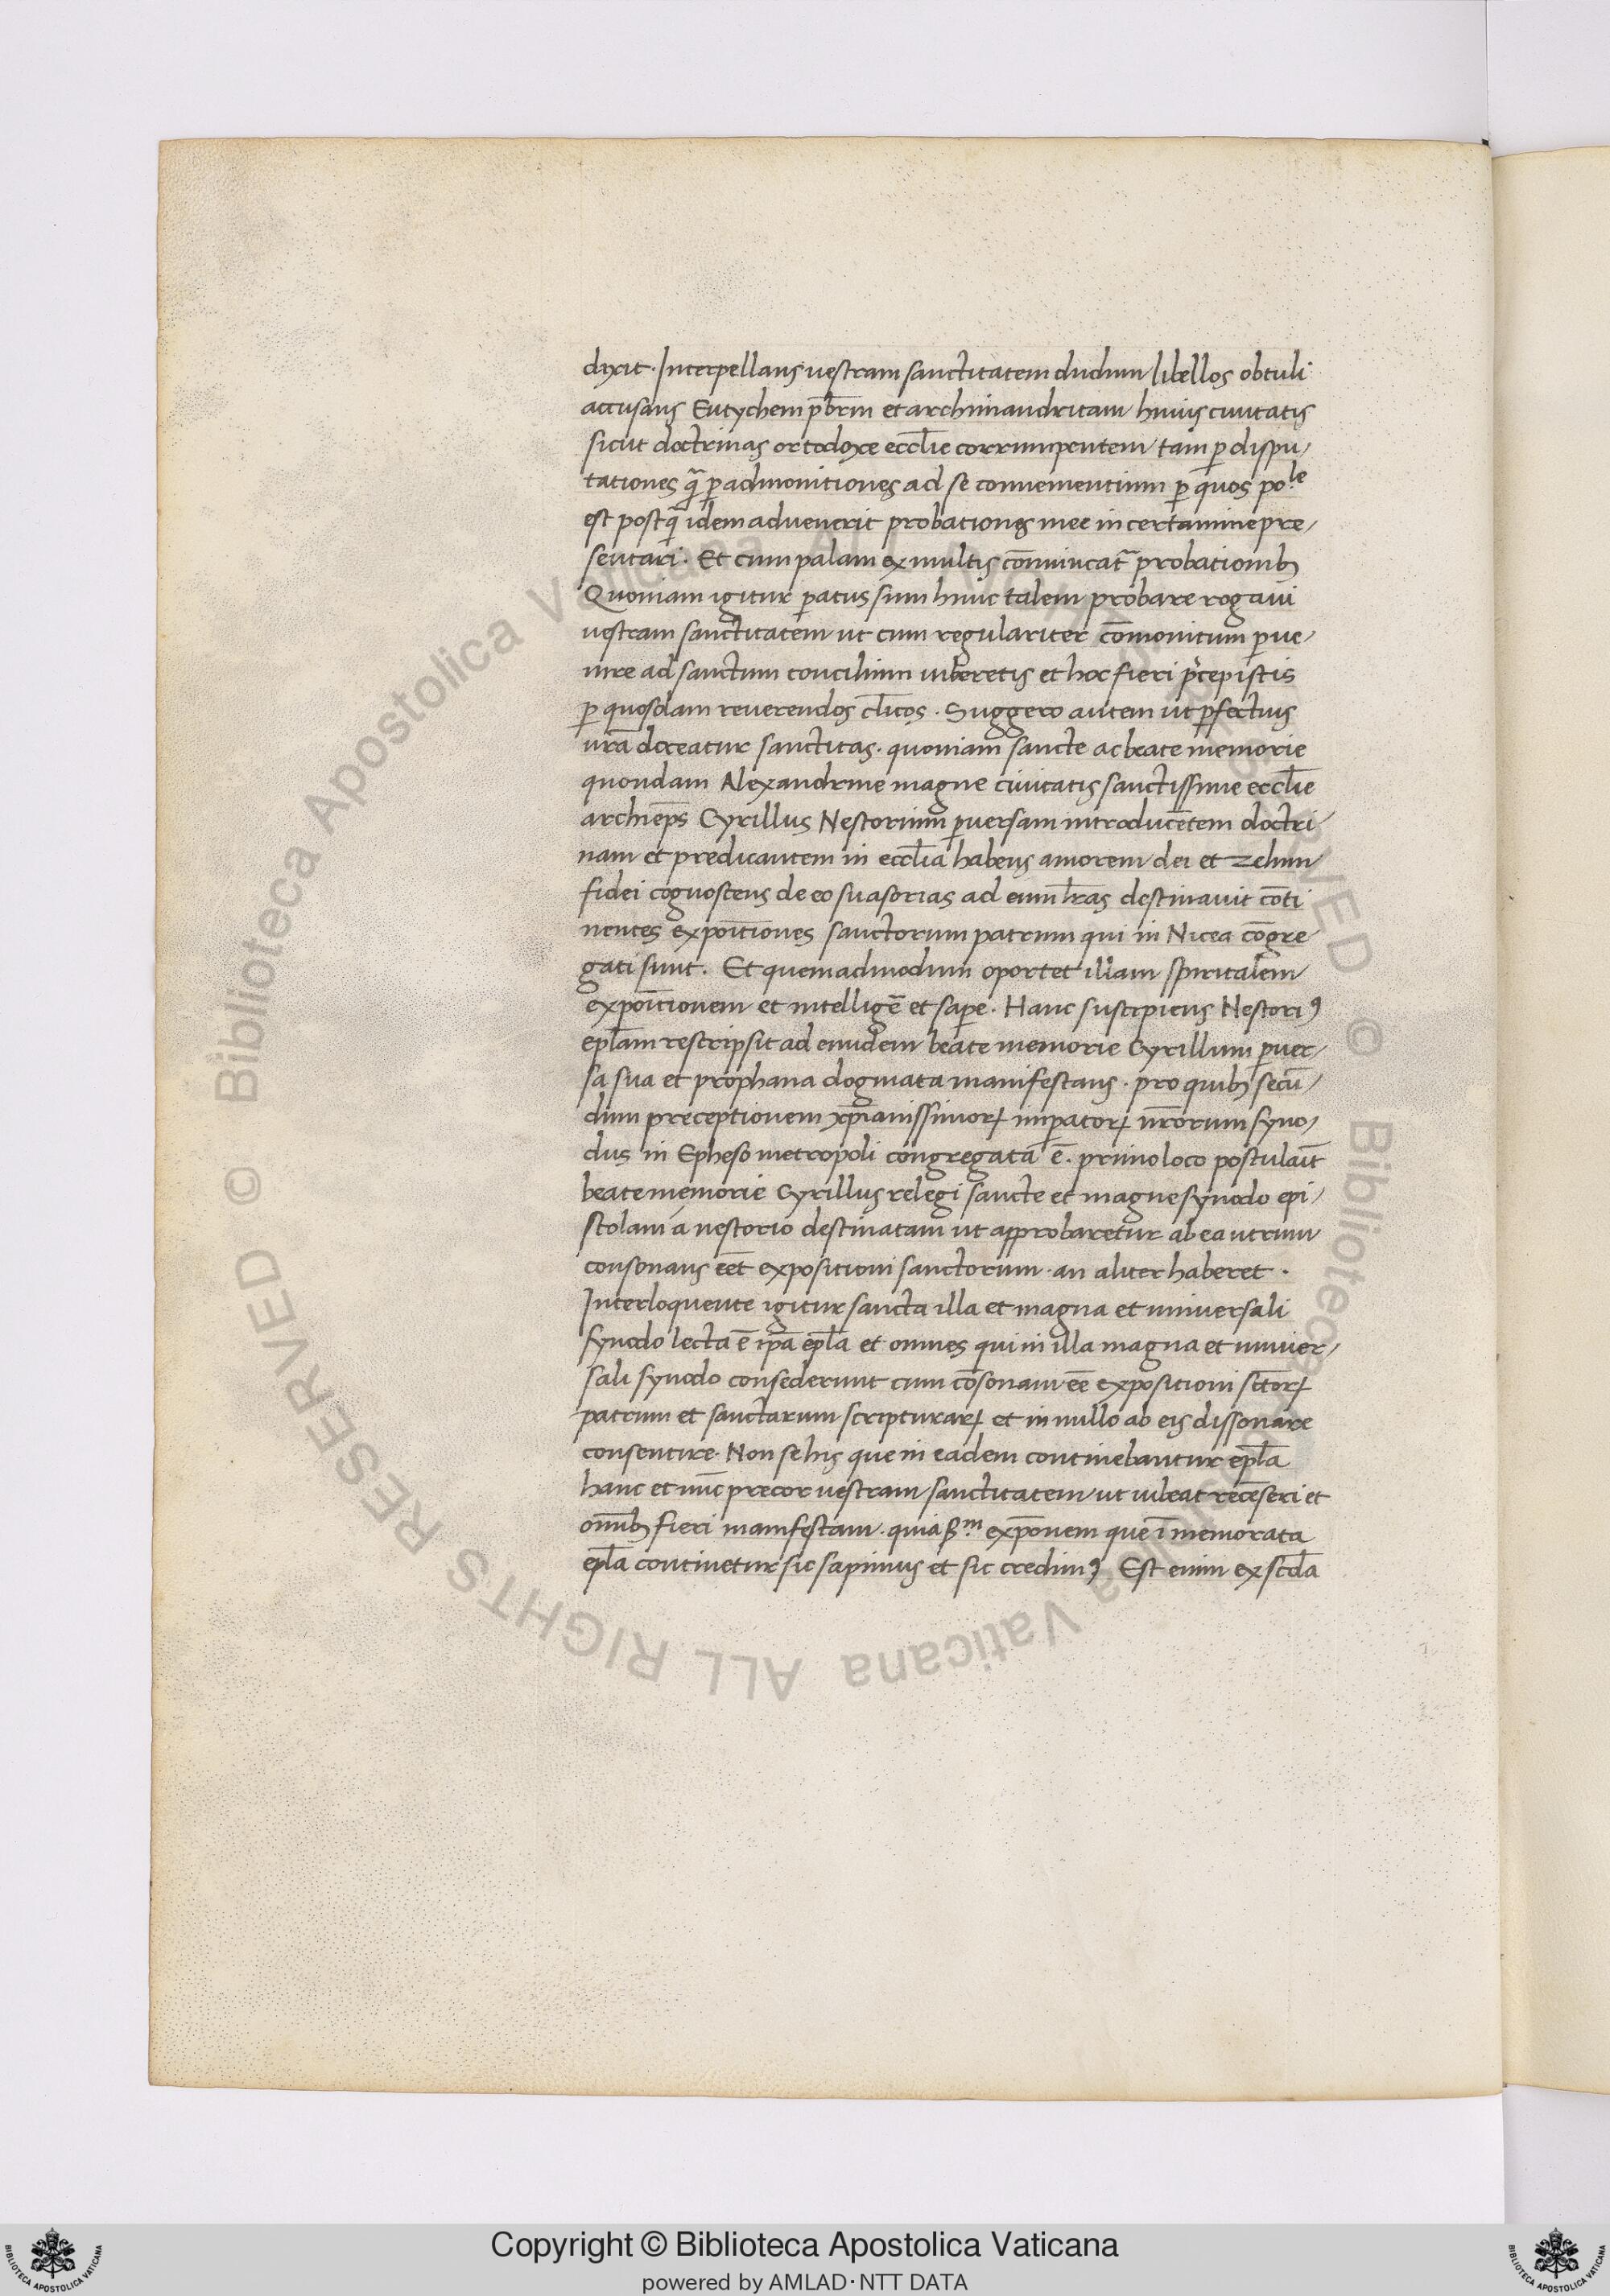 dixit. Interpellans vestram sanctitatem dudum libellos obtuli
accusans Eutychem pr̄bm et archimandritam huius ciuitatis
sicut doctrinas ortodoxe eccl̄ie corrumpentem tam ꝑ dispu/
tationes qͣ̄ ꝑ admonitiones ad se conuenientium ꝑ quos po.le
est postq̄ idem aduenerit probationes mee in certamine pre/
sentari. Et cum palam ex multis cōnuincat̃ probationibꝫ
Quoniam igitur ꝑatus sum hunc talem probare rogaui
uestram sanctitatem ut eum regulariter cōmonitum ꝑue/
nire ad sanctum concilium iuberetis et hoc fieri p̃cepistis
ꝑ quosdam reuerendos cl̄icos. Suggero autem ut ꝑfectius
ur̄a doceatur sanctitas. quoniam sancte ac beate memorie
quondam Alexandrine magne ciuitatis sanctissime eccl̄ie
archiep̄s Cyrillus Nestorium ꝑuersam introducētem doctri/
nam et predicantem in eccl̄ia habens amorem dei et zelum
fidei cognoscens de eo suasorias ad eum lr̄as destinauit cōti
nentes expoītiones sanctorum patrum qui in Nicea cōgre
gati sunt. Et quemadmodum oportet illam spiritalem
expoītionem et intelligē et saꝑe. Hanc suscipiens Nestoriꝯ
epl̄am rescripsit ad eundem beate memorie Cyrillum ꝑuer/
sa sua et prophana dogmata manifestans. pro quibꝫ secū/
dum preceptionem xp̄ianissimoꝝ imꝑatoꝝ nr̄orum syno/
dus in Epheso metropoli congregata ē. primo loco postulauit
beate memorie Cyrillus relegi sancte et magne synodo epi/
stolam a nestorio destinatam ut approbaretur ab ea utrum
consonans eēt expositioni sanctorum. an aliter haberet.
Interloquente igitur sancta illa et magna et uniuersali
synodo lecta ē ip̄a epl̄a et omnes qui in illa magna et uniuer/
sali synodo consederunt eum cōsonam eē expositioni sctōꝝ
patrum et sanctarum scripturaꝝ et in nullo ab eis dissonare
consentire. Non se his que in eadem continebantur epl̄a
hanc et nūc precor uestram sanctitatem ut iubeat recēseri et
omībꝫ fieri manifestam. quia ẜ.m exp̄onem que ī memorata
epl̄a continetur sic sapimus et sic credimꝯ Est enim ex scd̄a
Copyright © Biblioteca Apostolica Vaticana
powered by AMLAD·NTT DATA